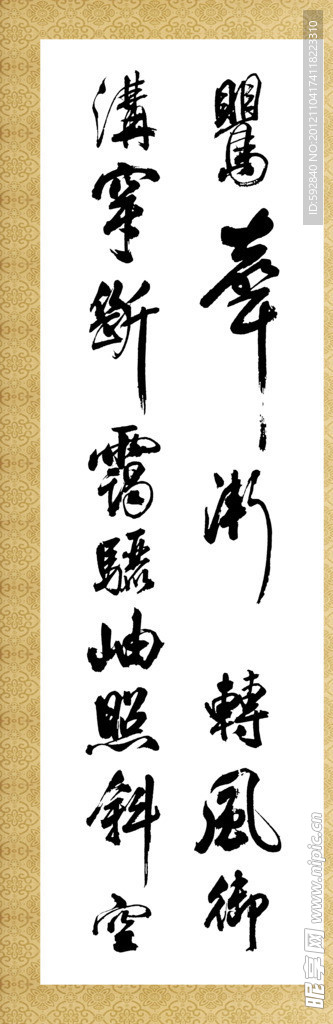 鸎華漸轉風御
溝穿斷靄驪岫照斜空
ID:592840 NO:20121104174118223310
昵享网 www.nipic.cn